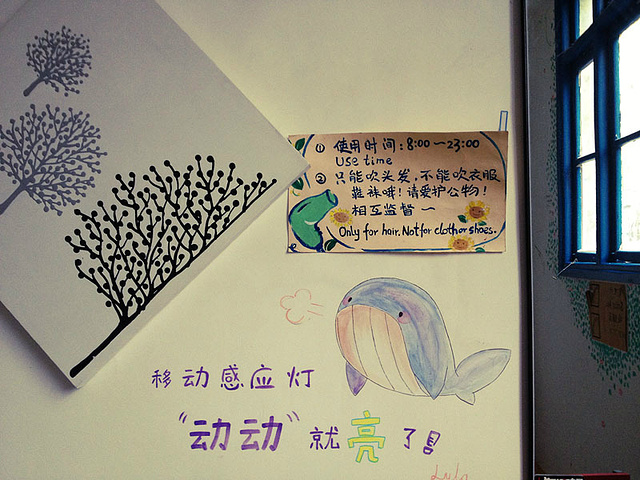 ① 使用时间：8:00～23:00
Use time
② 只能吹头发，不能吹衣服
鞋袜哦！请爱护公物！
相互监督～
Only for hair. Not for cloth or shoes.
移动感应灯
“动动”就亮了
Lulu